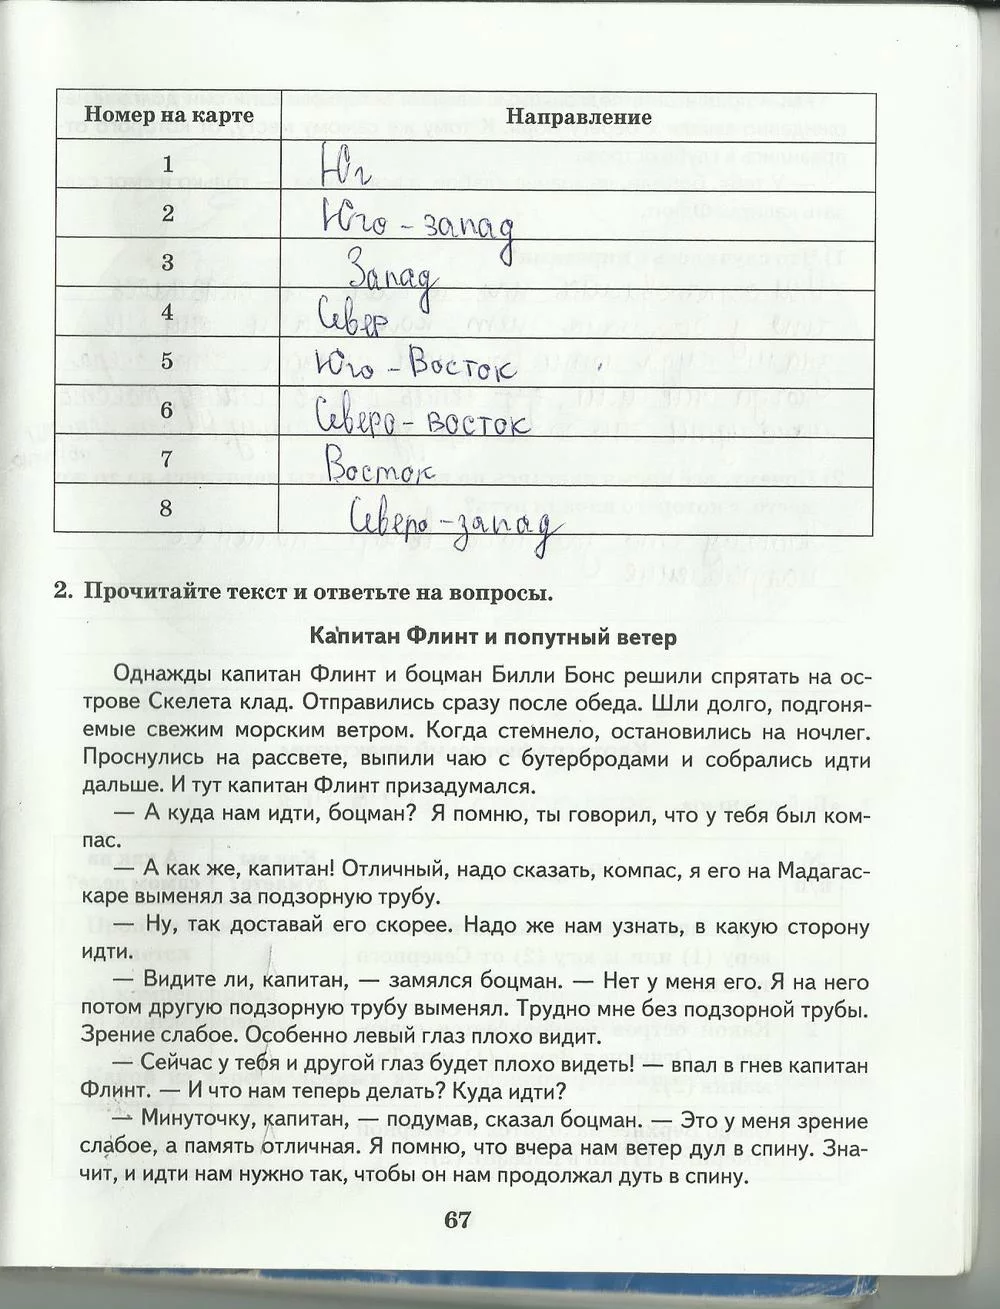 Номер на карте Направление
1 Юг
2 Юго - запад
3 Запад
4 Север
5 Юго - Восток
6 Северо - восток
7 Восток
8 Северо - запад
2. Прочитайте текст и ответьте на вопросы.
Капитан Флинт и попутный ветер
Однажды капитан Флинт и боцман Билли Бонс решили спрятать на ос-
трове Скелета клад. Отправились сразу после обеда. Шли долго, подгоня-
емые свежим морским ветром. Когда стемнело, остановились на ночлег.
Проснулись на рассвете, выпили чаю с бутербродами и собрались идти
дальше. И тут капитан Флинт призадумался.
— А куда нам идти, боцман? Я помню, ты говорил, что у тебя был ком-
пас.
— А как же, капитан! Отличный, надо сказать, компас, я его на Мадагас-
каре выменял за подзорную трубу.
— Ну, так доставай его скорее. Надо же нам узнать, в какую сторону
идти.
— Видите ли, капитан, — замялся боцман. — Нет у меня его. Я на него
потом другую подзорную трубу выменял. Трудно мне без подзорной трубы.
Зрение слабое. Особенно левый глаз плохо видит.
— Сейчас у тебя и другой глаз будет плохо видеть! — впал в гнев капитан
Флинт. — И что нам теперь делать? Куда идти?
— Минуточку, капитан, — подумав, сказал боцман. — Это у меня зрение
слабое, а память отличная. Я помню, что вчера нам ветер дул в спину. Зна-
чит, и идти нам нужно так, чтобы он нам продолжал дуть в спину.
67